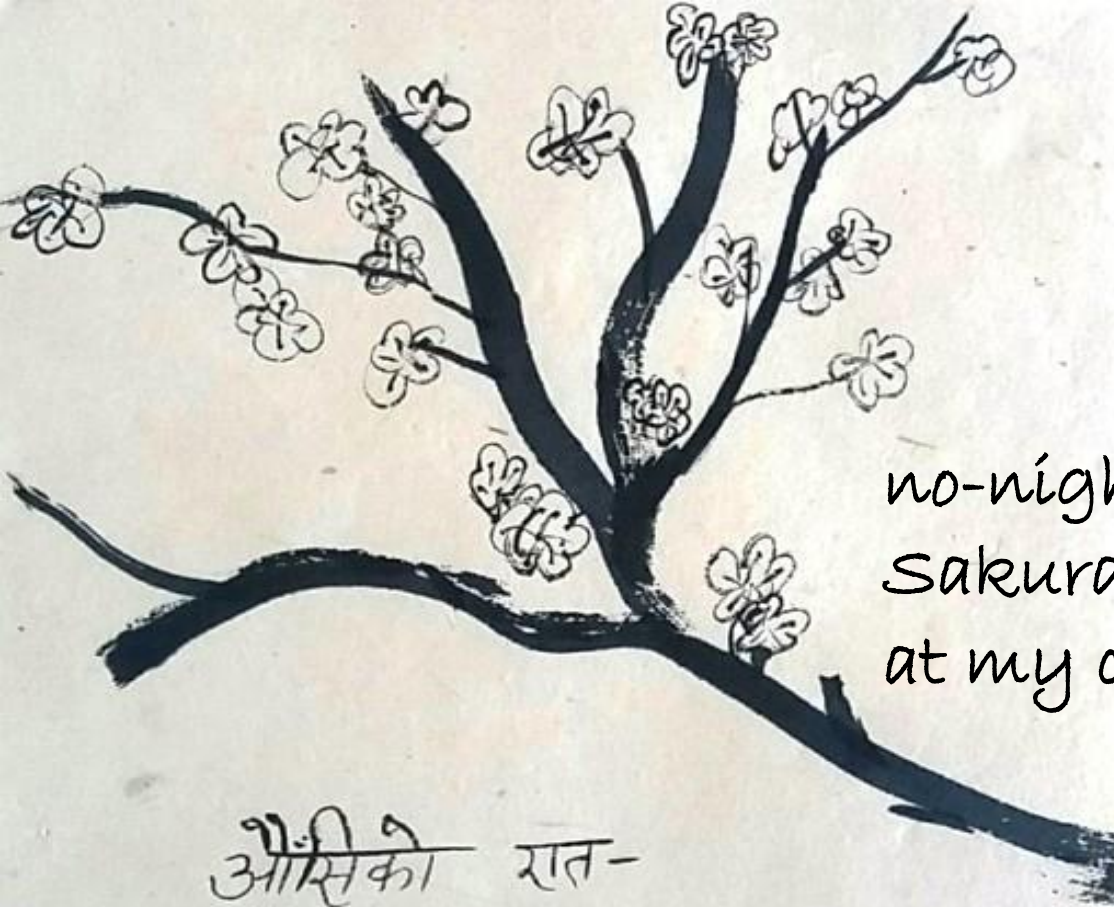 no-nigh
Sakura
at my
औंसिको रात-